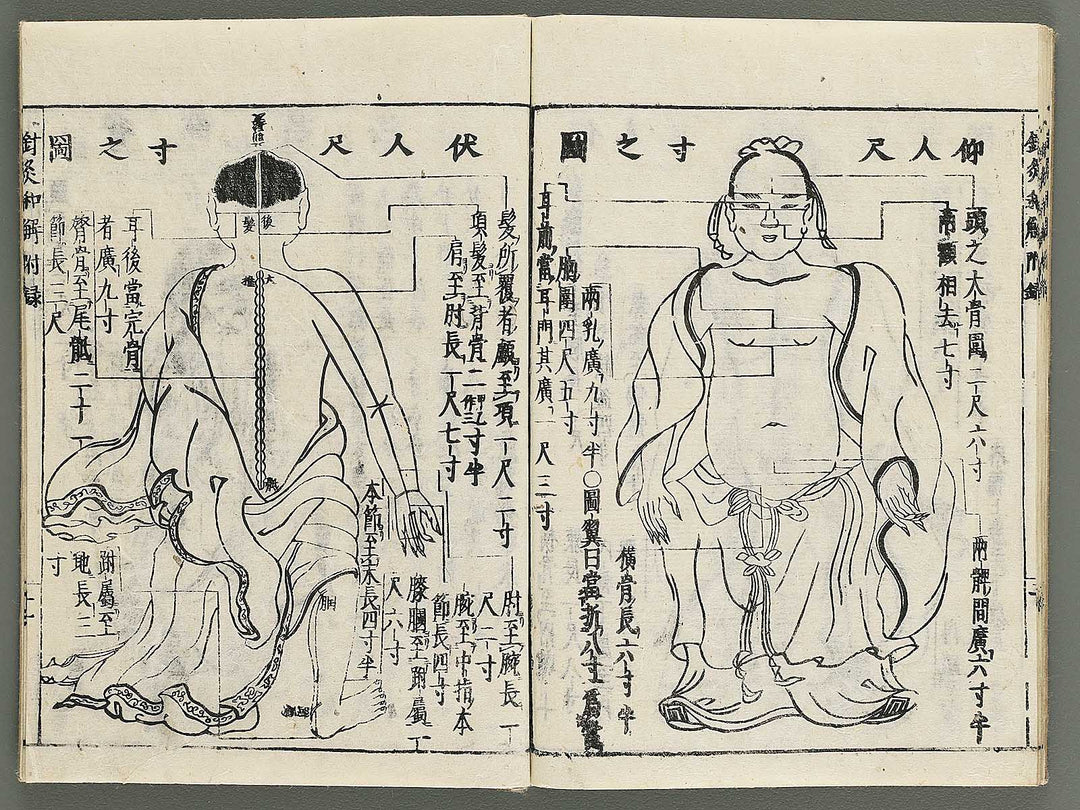 仰人尺寸之圖
頭之大骨圍二尺六寸
兩顴相去七寸
兩髀間廣六寸半
橫骨長六寸半
兩乳廣九寸半○圖翼曰當折八寸爲
胸圍四尺五寸
耳前當耳門其廣一尺三寸
伏人尺寸之圖
後髮
大椎
髮所覆者顱至項一尺二寸
項髮至背骨二寸半
肩至肘長一尺七寸
肘至腕長一尺二寸
腕至中指本節長四寸
本節至末長四寸半
膝膕至跗屬一尺六寸
膕
耳後當完骨者廣九寸
膂骨至尾骶二十一節長三尺
跗屬至地長三寸
針灸和解附録